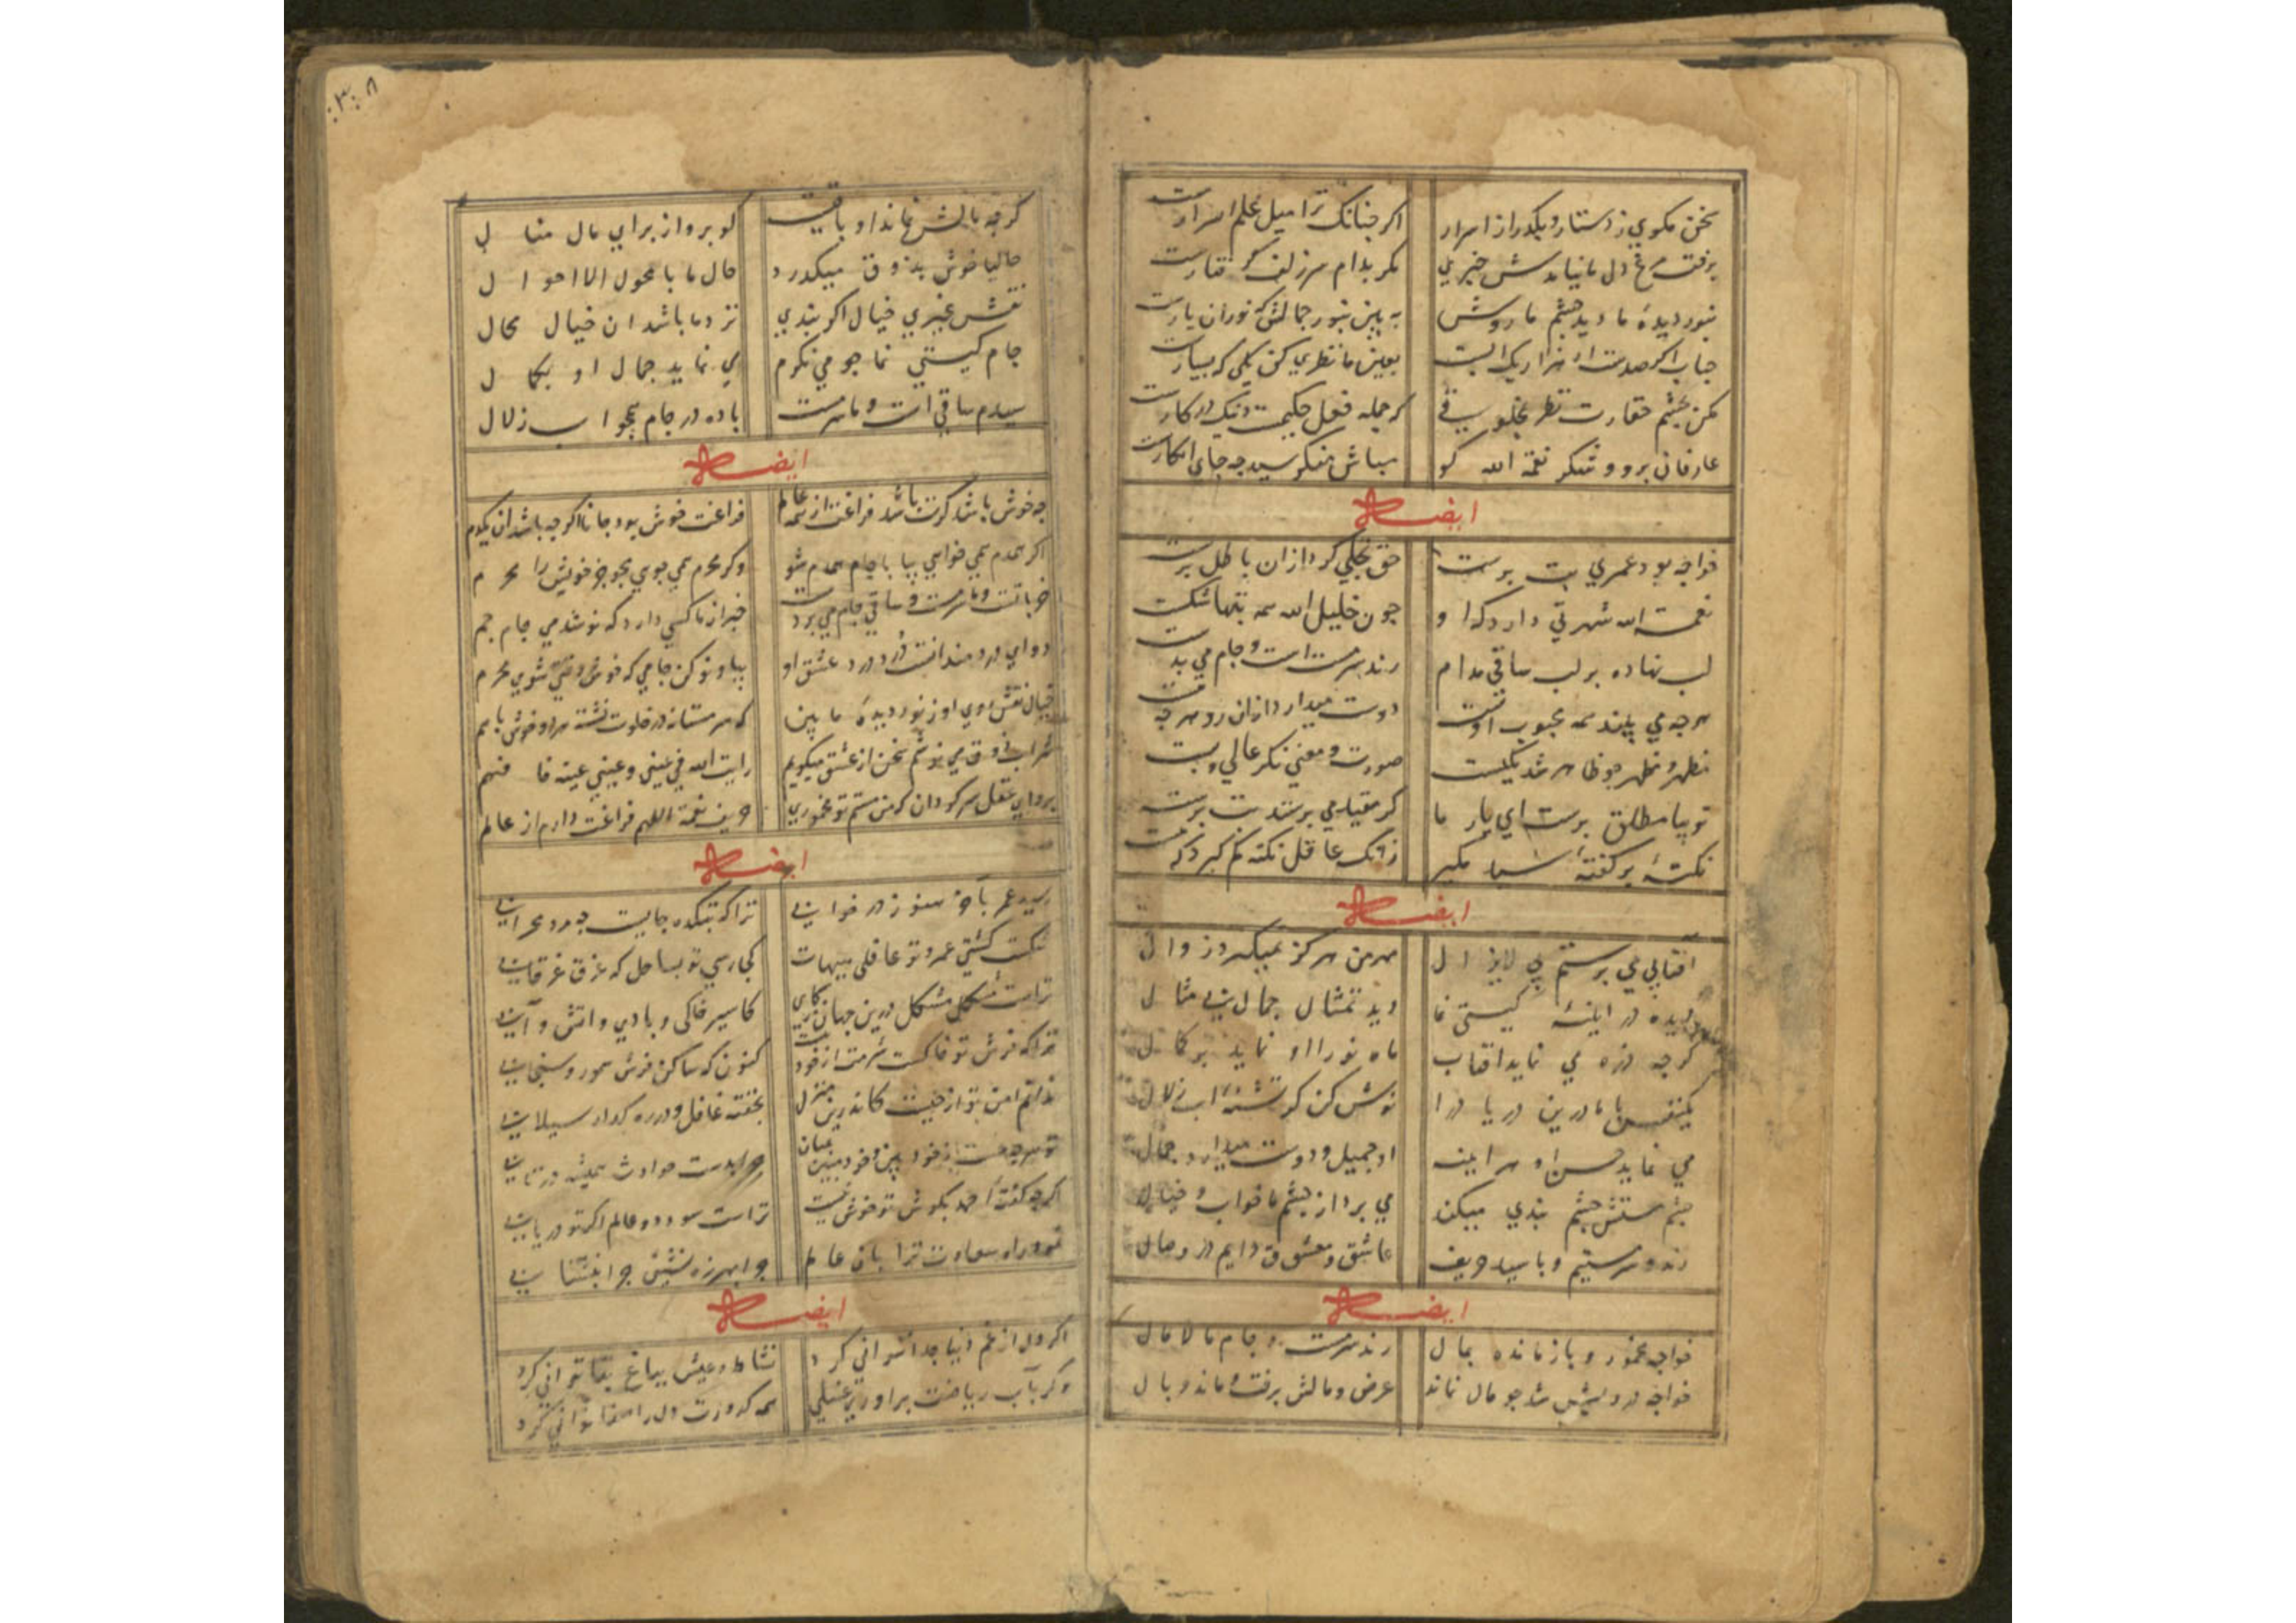 سخن مگوی ز دستار و بگذر از اسرار اگر چنانک ترا میل علم اسرارست
برفت مرغ دل ما نیامدش خبری مگر بدام سر زلف گرفتارست
بنور دیدهٔ ما دید چشم ما رویش به بین بنور جمالش که نور آن یارست
حباب اگر صدست ار هزار یک آبست بعین ما نظری کن یکی که بسیارست
مکن بچشم حقارت نظر بمخلوقی که جمله فعل حکیمست و نیک در کارست
عارفان برو و شکر نعمة الله گو مباش منکر سید چه جای انکارست
ایضاً
خواجه بود عمری بت پرست حق تجلی کرد از آن باطل پرست
نعمت الله شهرتی دارد که او چون خلیل الله همه بتها شکست
لب نهاده بر لب ساقی مدام رند سرمست است و جام می بدست
هرچه می بیند همه محبوب اوست دوست میدارد از آن رو هرچه هست
مظهر و مظهر چو ظاهر شد یکیست صورت و معنی نگر عالی و پست
تو بیا مطلق پرست ای یار ما گر مقید می پرستد بت پرست
نکته بر گفتهٔ سید مگیر زانک عاقل نکته کم گیرد که مست
ایضاً
آفتابی می پرستم بی لایزال مهر من هرگز نمیگیرد زوال
دیده در آینه گیتی نما دید تمثال جمال بی مثال
گرچه ذره می نماید آفتاب ماه نو را او نماید بر کمال
یکنفس با ما درین دریا درآ نوش کن گر تشنهٔ آب زلال
می نماید حسن او هر آینه او جمیل و دوست میدارد جمال
چشم مستش چشم بندی میکند می برد از چشم ما خواب و خیال
رند و سرمستیم و با سید حریف عاشق و معشوق دایم در وصال
ایضاً
خواجه مخمور و بازمانده بمال رند سرمست و جام مالامال
خواجه درویش شد چو مال نماند عرض و مالش برفت و ماند وبال
۳۰۸
گرچه بالش نماند او باقیست گو برو از برای مال منال
حالیا خوش بذوق میگذرد حال ما با محول الاحوال
نقش غیری خیال اگر بندی نزد ما باشد آن خیال محال
جام گیتی نما چو می نگرم می نماید جمال او بکمال
سیدم ساقی است و ما سرمست باده در جام همچو آب زلال
ایضاً
چه خوش باشد گرت باشد فراغت از همه عالم فراغت خوش بود جانا اگرچه باشد آن یکدم
اگر همدم همی خواهی بیا با جام همدم شو وگر محرم همی جویی بجو خویش را محرم
خراباتست و ما سرمست و ساقی جام می بر دست خبر از ما کسی دارد که نوشد می ز جام جم
دوای دردمندانست درد درد عشق او بیا و نوش کن جامی که خوش وقتی شوی محرم
خیال نقش روی او ز نور دیدهٔ ما بین که سرمستانه در خلوت نشسته هر دو خوش با هم
شراب ذوق می نوشم سخن از عشق میگویم رایت الله فی عینی و عینی عینه فافهم
برو ای عقل سرگردان که من مستم تو مخموری حریف نعمة اللهم فراغت دارم از عالم
ایضاً
رسید عمر بآخر هنوز در خوابی ترا که بتکده جاییست چه مرد محرابی
شکست کشتی عمر و تو غافلی هیهات کجا رسی تو بساحل که غرق غرقابی
تراست مشکل مشکل درین جهان کاری کاسیر خاکی و بادی و آتش و آبی
ترا که فرش تو خاکست شرمت از خود نیست کنون که ساکن فرش سمور و سنجابی
ندانم امن تو از چیست کاندرین منزل بخفته غافل و در رهگذار سیلابی
تو هرچه هست ز خود بین و خود مبین بمیان چرا بدست حوادث همیشه در تابی
اگرچه گفته سید بگوش تو خوش نیست تراست سود دو عالم اگر تو دریابی
نمود راه سعادت ترا بان عالم چرا بهرزه نشینی چرا نشتابی
ایضاً
اگر دل از غم دنیا جدا توانی کرد نشاط و عیش بباغ بقا توانی کرد
وگر بآب ریاضت براوری غسلی همه کدورت دل را صفا توانی کرد